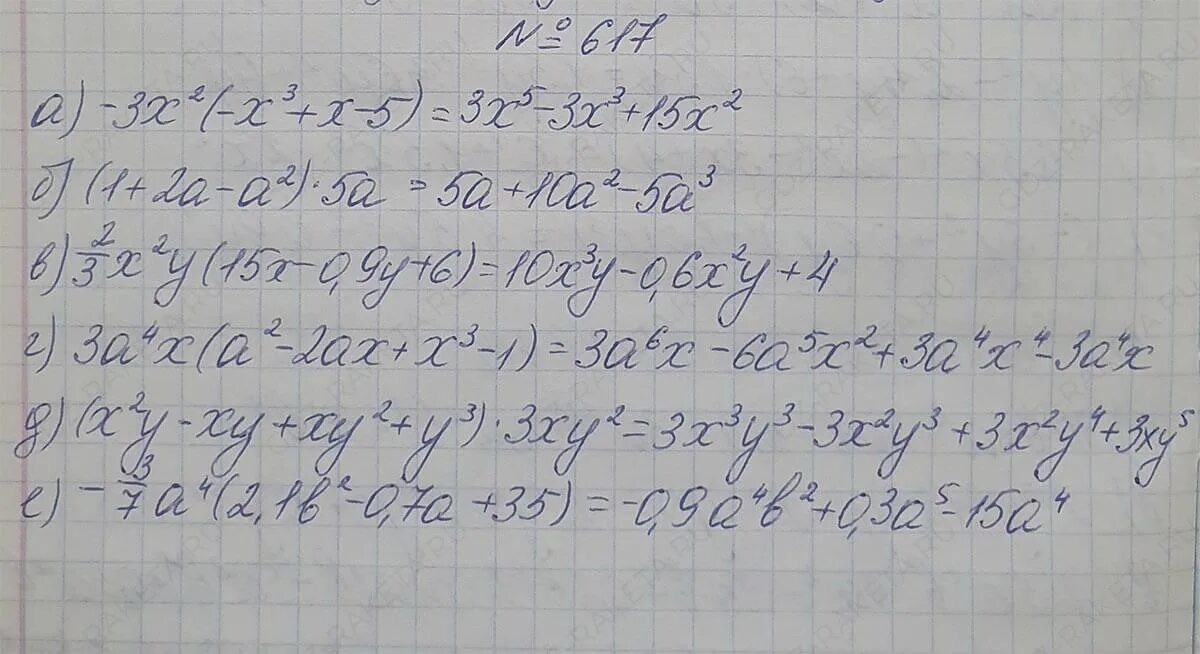 № 617
а) -3x²(-x³+x-5)=3x⁵-3x³+15x²
б) (1+2a-a²)·5a = 5a+10a²-5a³
в) 2/3 x²y(15x-0,9y+6)=10x³y-0,6x²y+4
г) 3a⁴x(a²-2ax+x³-1)=3a⁶x-6a⁵x²+3a⁴x⁴-3a⁴x
д) (x²y-xy+xy²+y³)·3xy²=3x³y³-3x²y³+3x²y⁴+3xy⁵
е) -3/7 a⁴(2,1b²-0,7a+35)=-0,9a⁴b²+0,3a⁵-15a⁴